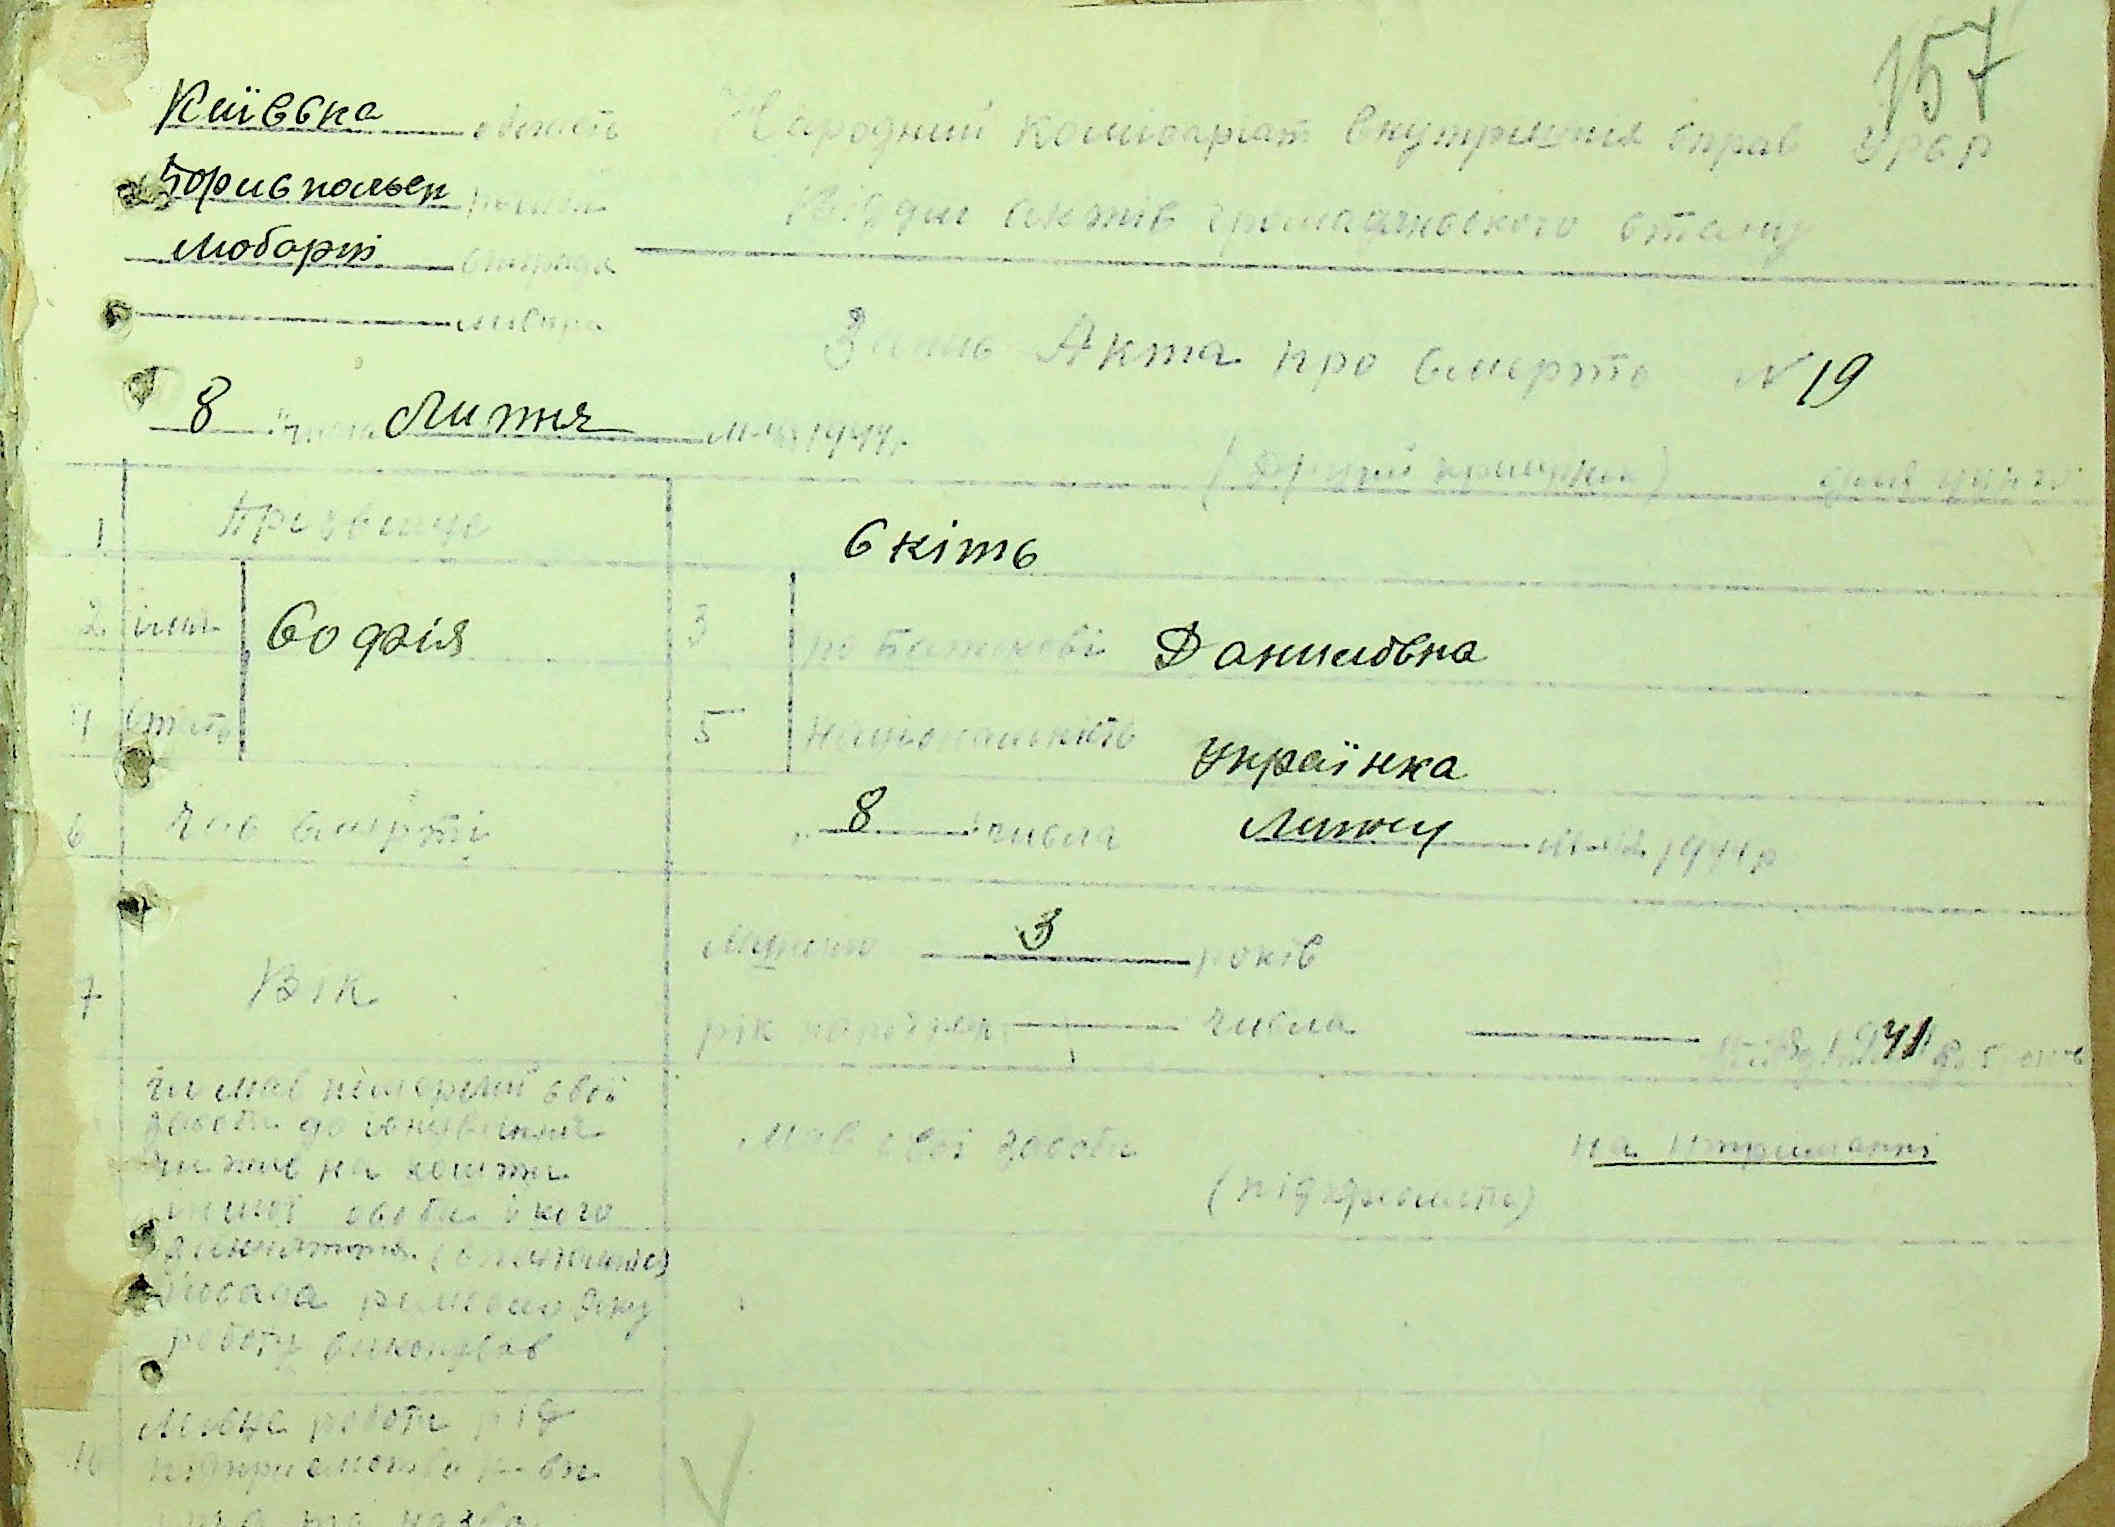 157
Київська область
Бориспольськ район
Любарці сільрада
місто
Народний Комісаріат Внутрішніх Справ УРСР
Відділ актів громадянського стану
Запис Акта про смерть № 19
8 числа Липня м-ця 1944 р.
(Другий примірник)
1 Прізвище Скіть
2 ім'я Софія 3 по батькові Даниловна
4 стать 5 національність Українка
6 Час смерті 8 числа Липня м-ця 1944 р
7 Вік Минуло 3 років
рік народжен числа 1941
Чи мав померлий свої
засоби до існування
чи жив на кошти
іншої особи і кого
Мав свої засоби на утриманні
(підкреслити)
посада ремесло яку
роботу виконував
10 Місце роботи
та назва